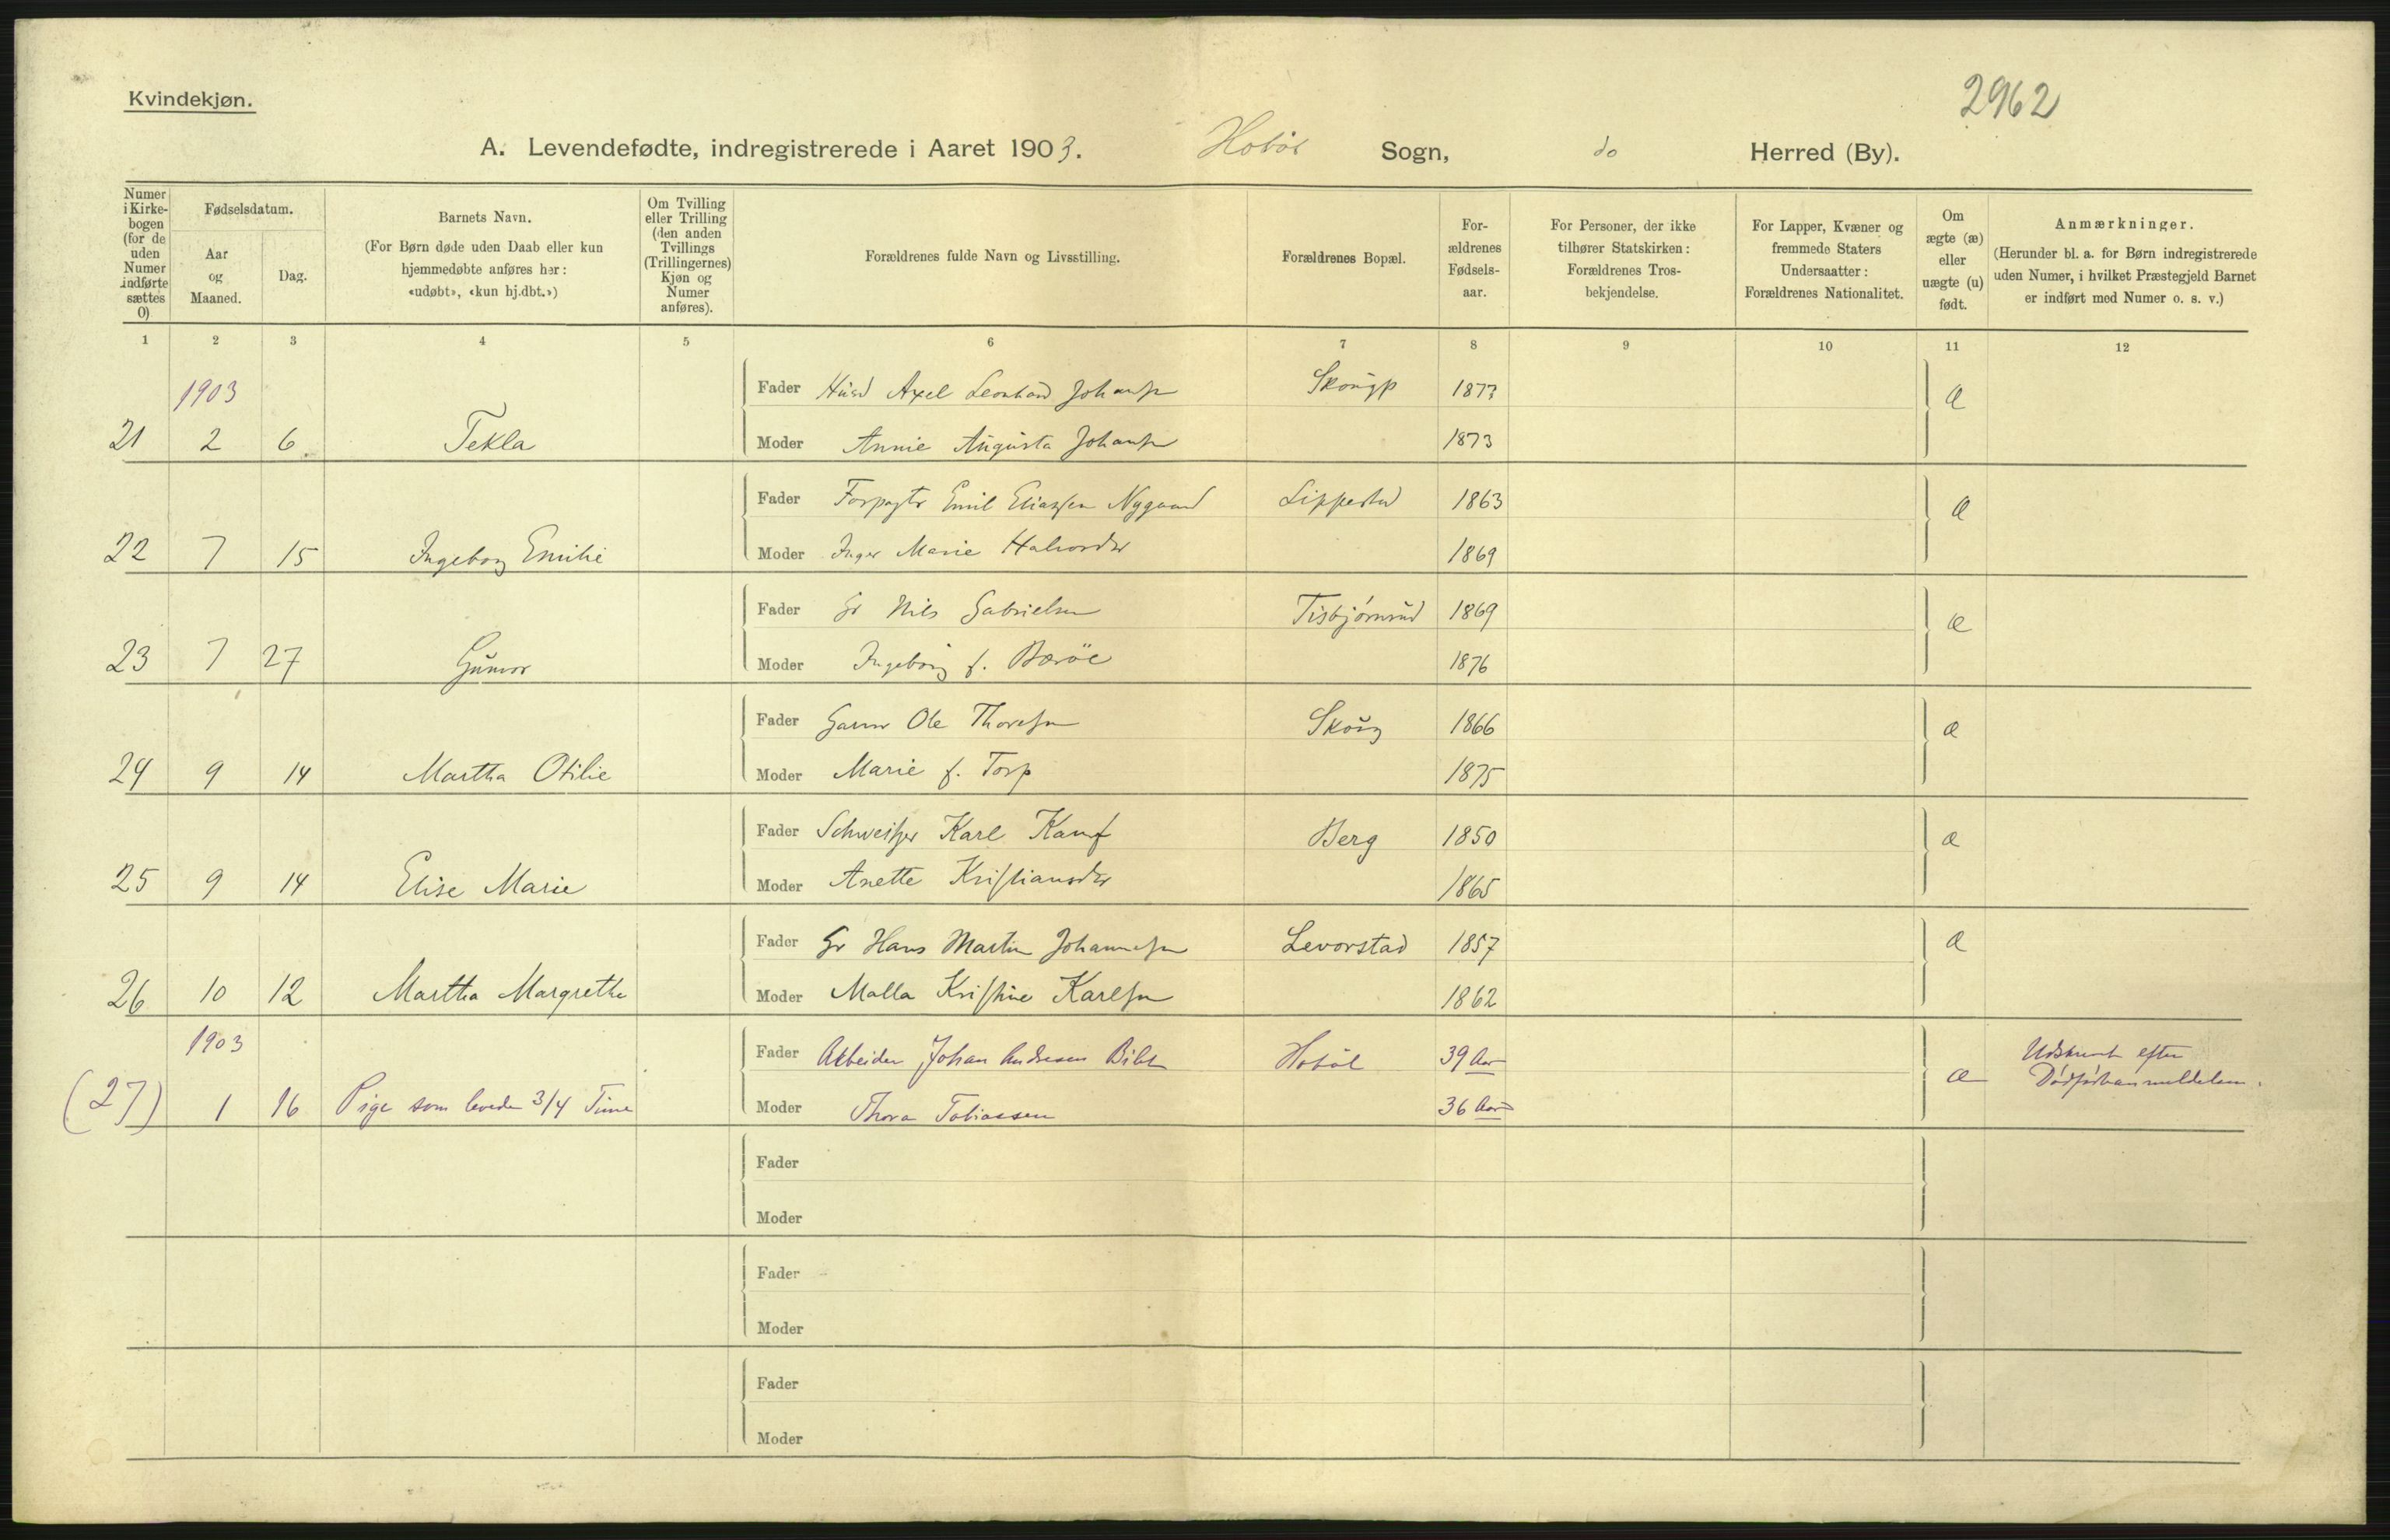 Kvindekjøn.
2962
A. Levendefødte, indregistrerede i Aaret 1903. Hobøl Sogn, do Herred (By).
Numer i Kirke- bogen (for de uden Numer indførte sættes 0)
Fødselsdatum.
Aar og Maaned.
Dag.
Barnets Navn.
(For Børn døde uden Daab eller kun
hjemmedøbte anføres her:
«udøbt», «kun hj.dbt.»)
Om Tvilling
eller Trilling
(den anden
Tvillings
(Trillingernes)
Kjøn og
Numer
anføres).
Forældrenes fulde Navn og Livsstilling.
Forældrenes Bopæl.
For-
ældrenes
Fødsels-
aar.
For Personer, der ikke
tilhører Statskirken:
Forældrenes Tros-
bekjendelse.
For Lapper, Kvæner og
fremmede Staters
Undersaatter:
Forældrenes Nationalitet.
Om
ægte (æ)
eller
uægte (u)
født.
Anmærkninger.
(Herunder bl. a. for Børn indregistrerede
uden Numer, i hvilket Præstegjeld Barnet
er indført med Numer o. s. v.)
1 2 3 4 5 6 7 8 9 10 11 12
1903 Fader Axel Leonhard Johansen 1873 æ
21 2 6 Tekla Moder Annie Augusta Johansen 1873
Fader Forpagter Emil Eliassen Nygaard Lippestad 1863 æ
22 7 15 Ingeborg Emilie Moder Inger Marie Halvorsdtr 1869
Fader Gr Nils Gabrielsen Tisbjørnrud 1869 æ
23 7 27 Gunvor Moder Ingeborg f. Borøe 1876
Fader Ole Thoresen Skoug 1866 æ
24 9 14 Martha Otilie Moder Marie f. Torp 1875
Fader Schweitzer Karl Kamf Berg 1850 æ
25 9 14 Elise Marie Moder Anette Kristiansdtr 1865
Fader Gr Hans Martin Johannesen Levorstad 1857 æ
26 10 12 Martha Margrethe Moder Malla Kristine Karlsen 1862
1903 Fader Arbeider Johan Andresen Hobøl 39 Aar æ Udskrevet efter
(27) 1 16 Pige som levede 3/4 Time Moder Thora Tobiassen 36 Aar Dødsfaldsanmeldelsen.
Fader
Moder
Fader
Moder
Fader
Moder